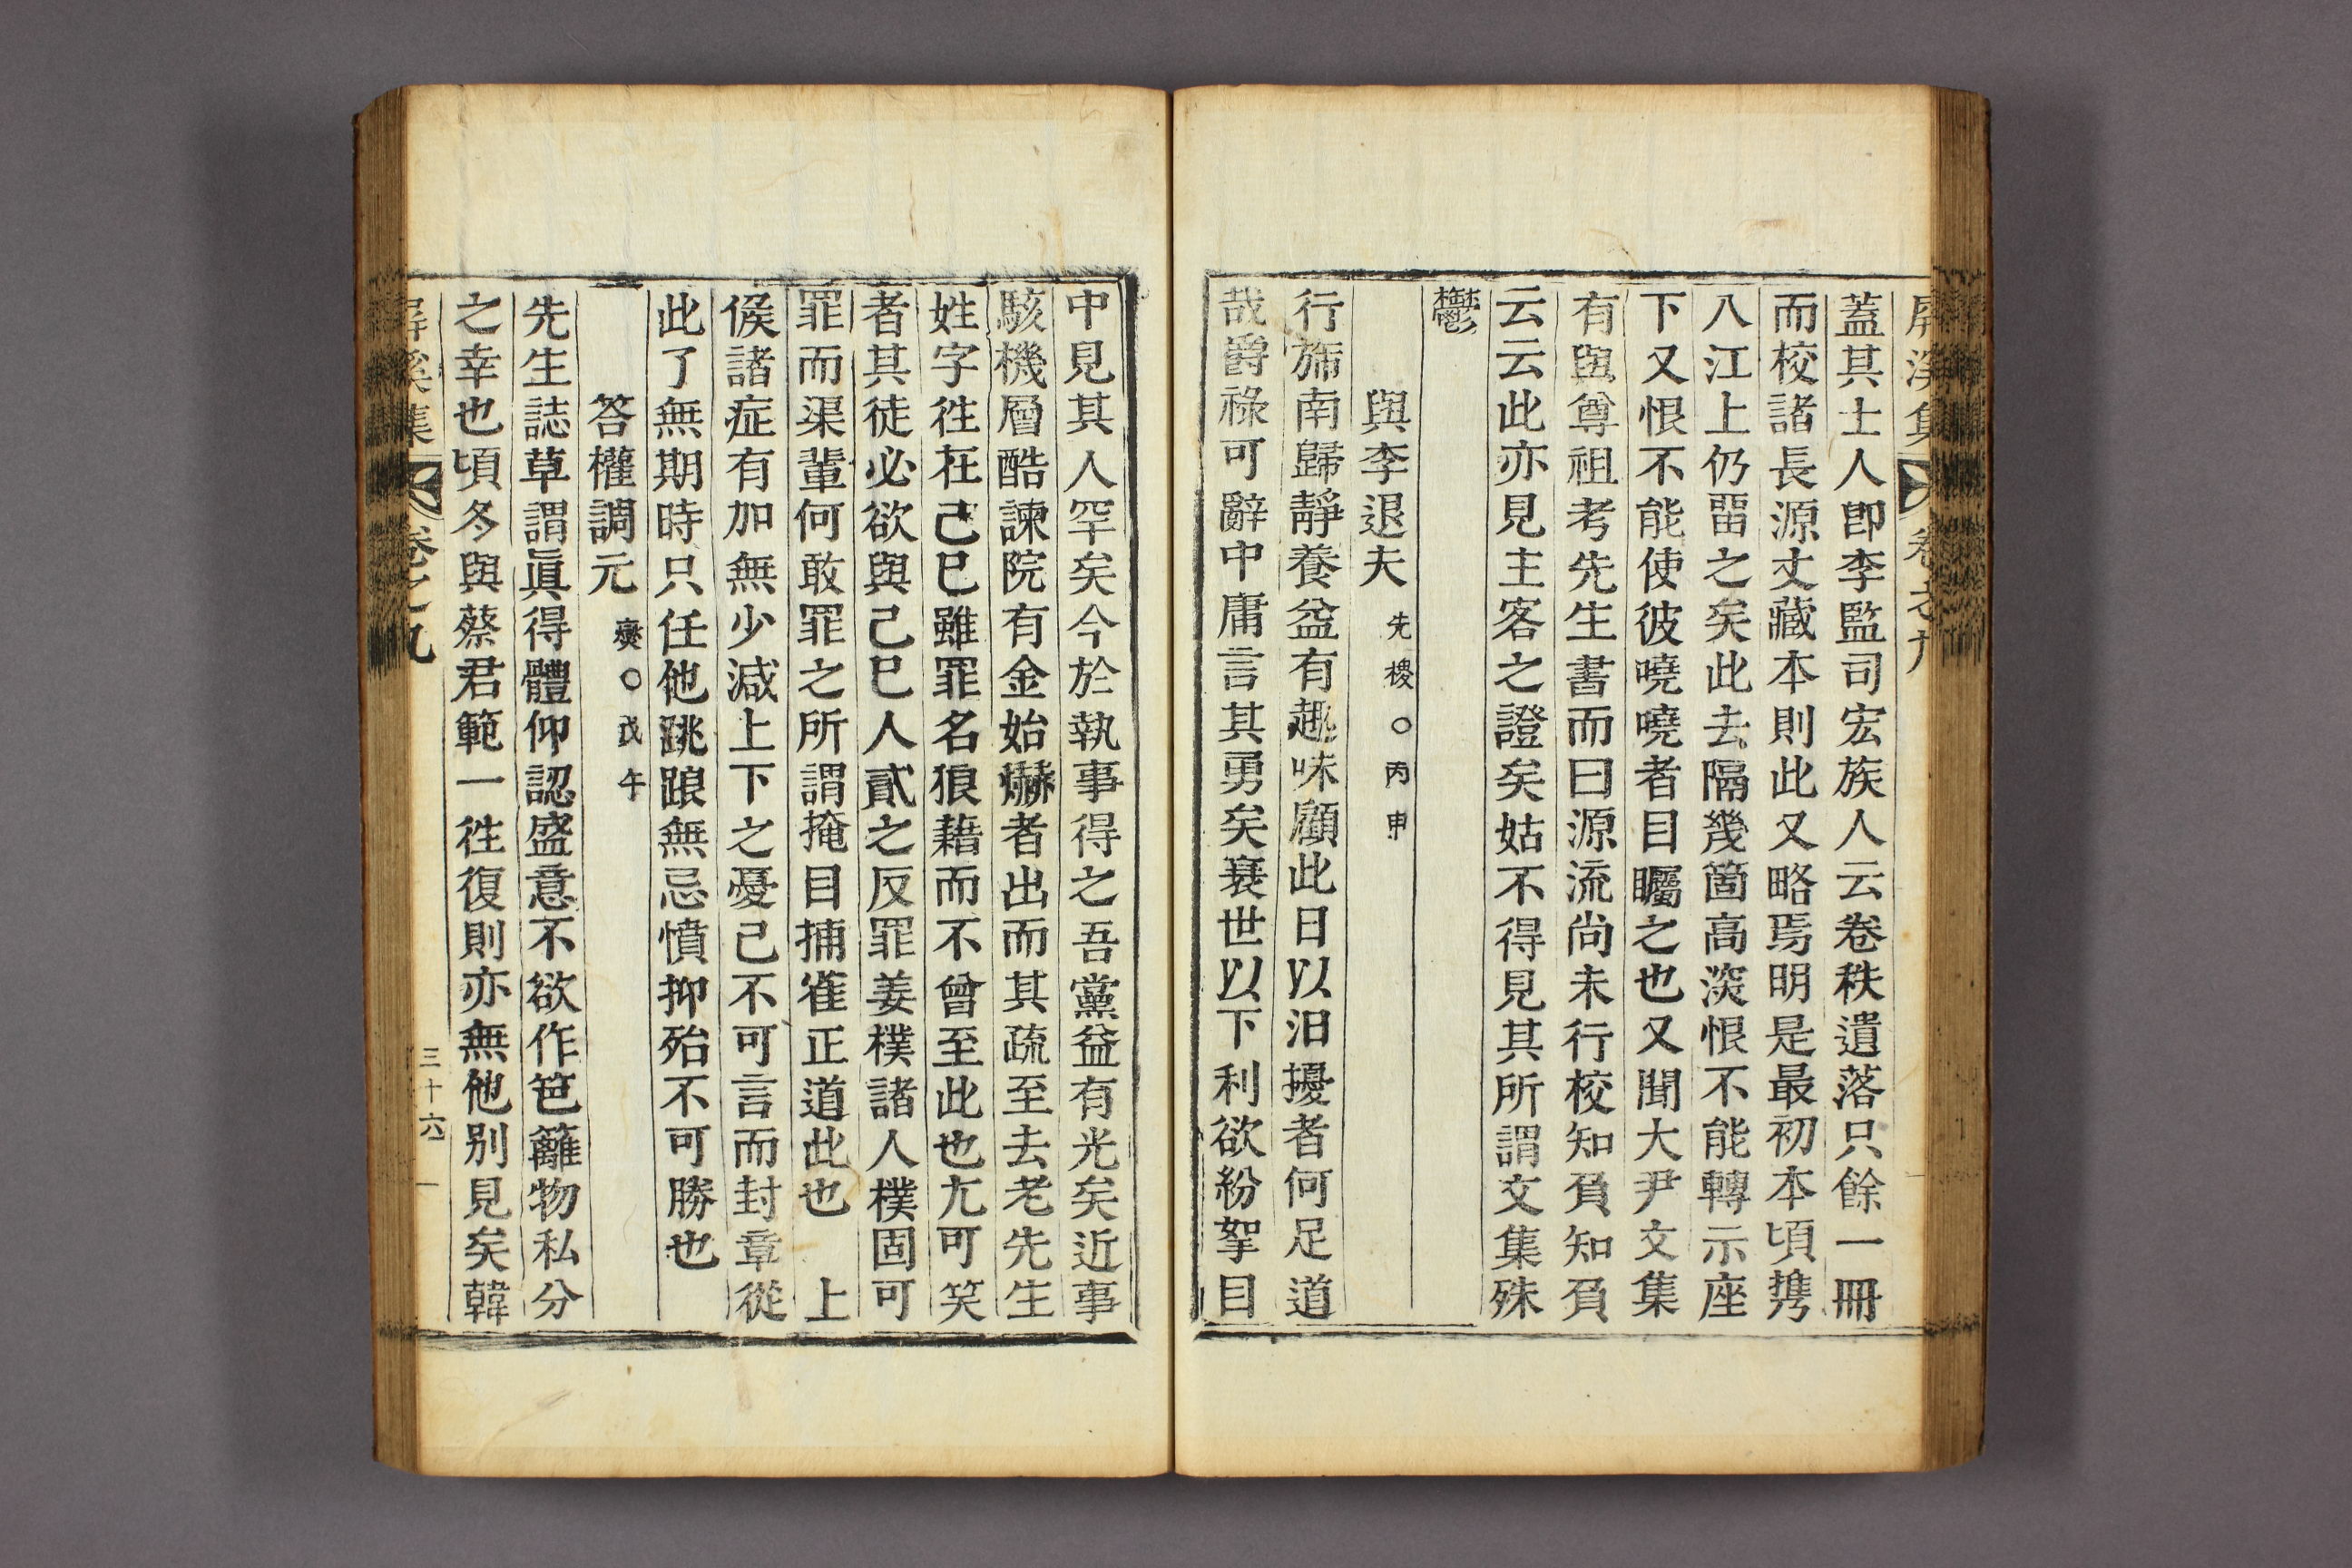 屏溪集 卷之九
蓋其士人卽李監司宏族人云卷秩遺落只餘一冊
而校諸長源丈藏本則此又略焉明是最初本頃携
八江上仍留之矣此去隔幾箇高深恨不能轉示座
下又恨不能使彼嘵嘵者目矚之也又聞大尹文集
有與尊祖考先生書而曰源流尚未行校知負知負
云云此亦見主客之證矣姑不得見其所謂文集殊
鬱
與李退夫 先稷○丙申
行旆南歸靜養益有趣味顧此日以汨擾者何足道
哉爵祿可辭中庸言其勇矣衰世以下利欲紛挐目
中見其人罕矣今於執事得之吾黨益有光矣近事
駭機層酷諫院有金始爀者出而其疏至去老先生
姓字徃在己巳雖罪名狼藉而不曾至此也尢可笑
者其徒必欲與己巳人貳之反罪姜樸諸人樸固可
罪而渠輩何敢罪之所謂掩目捕雀正道此也 上
候諸症有加無少减上下之憂已不可言而封章從
此了無期時只任他跳踉無忌憤抑殆不可勝也
答權調元 爕○戊午
先生誌草謂眞得體仰認盛意不欲作笆籬物私分
之幸也頃冬與蔡君範一徃復則亦無他別見矣韓
屏溪集 卷之九 三十六